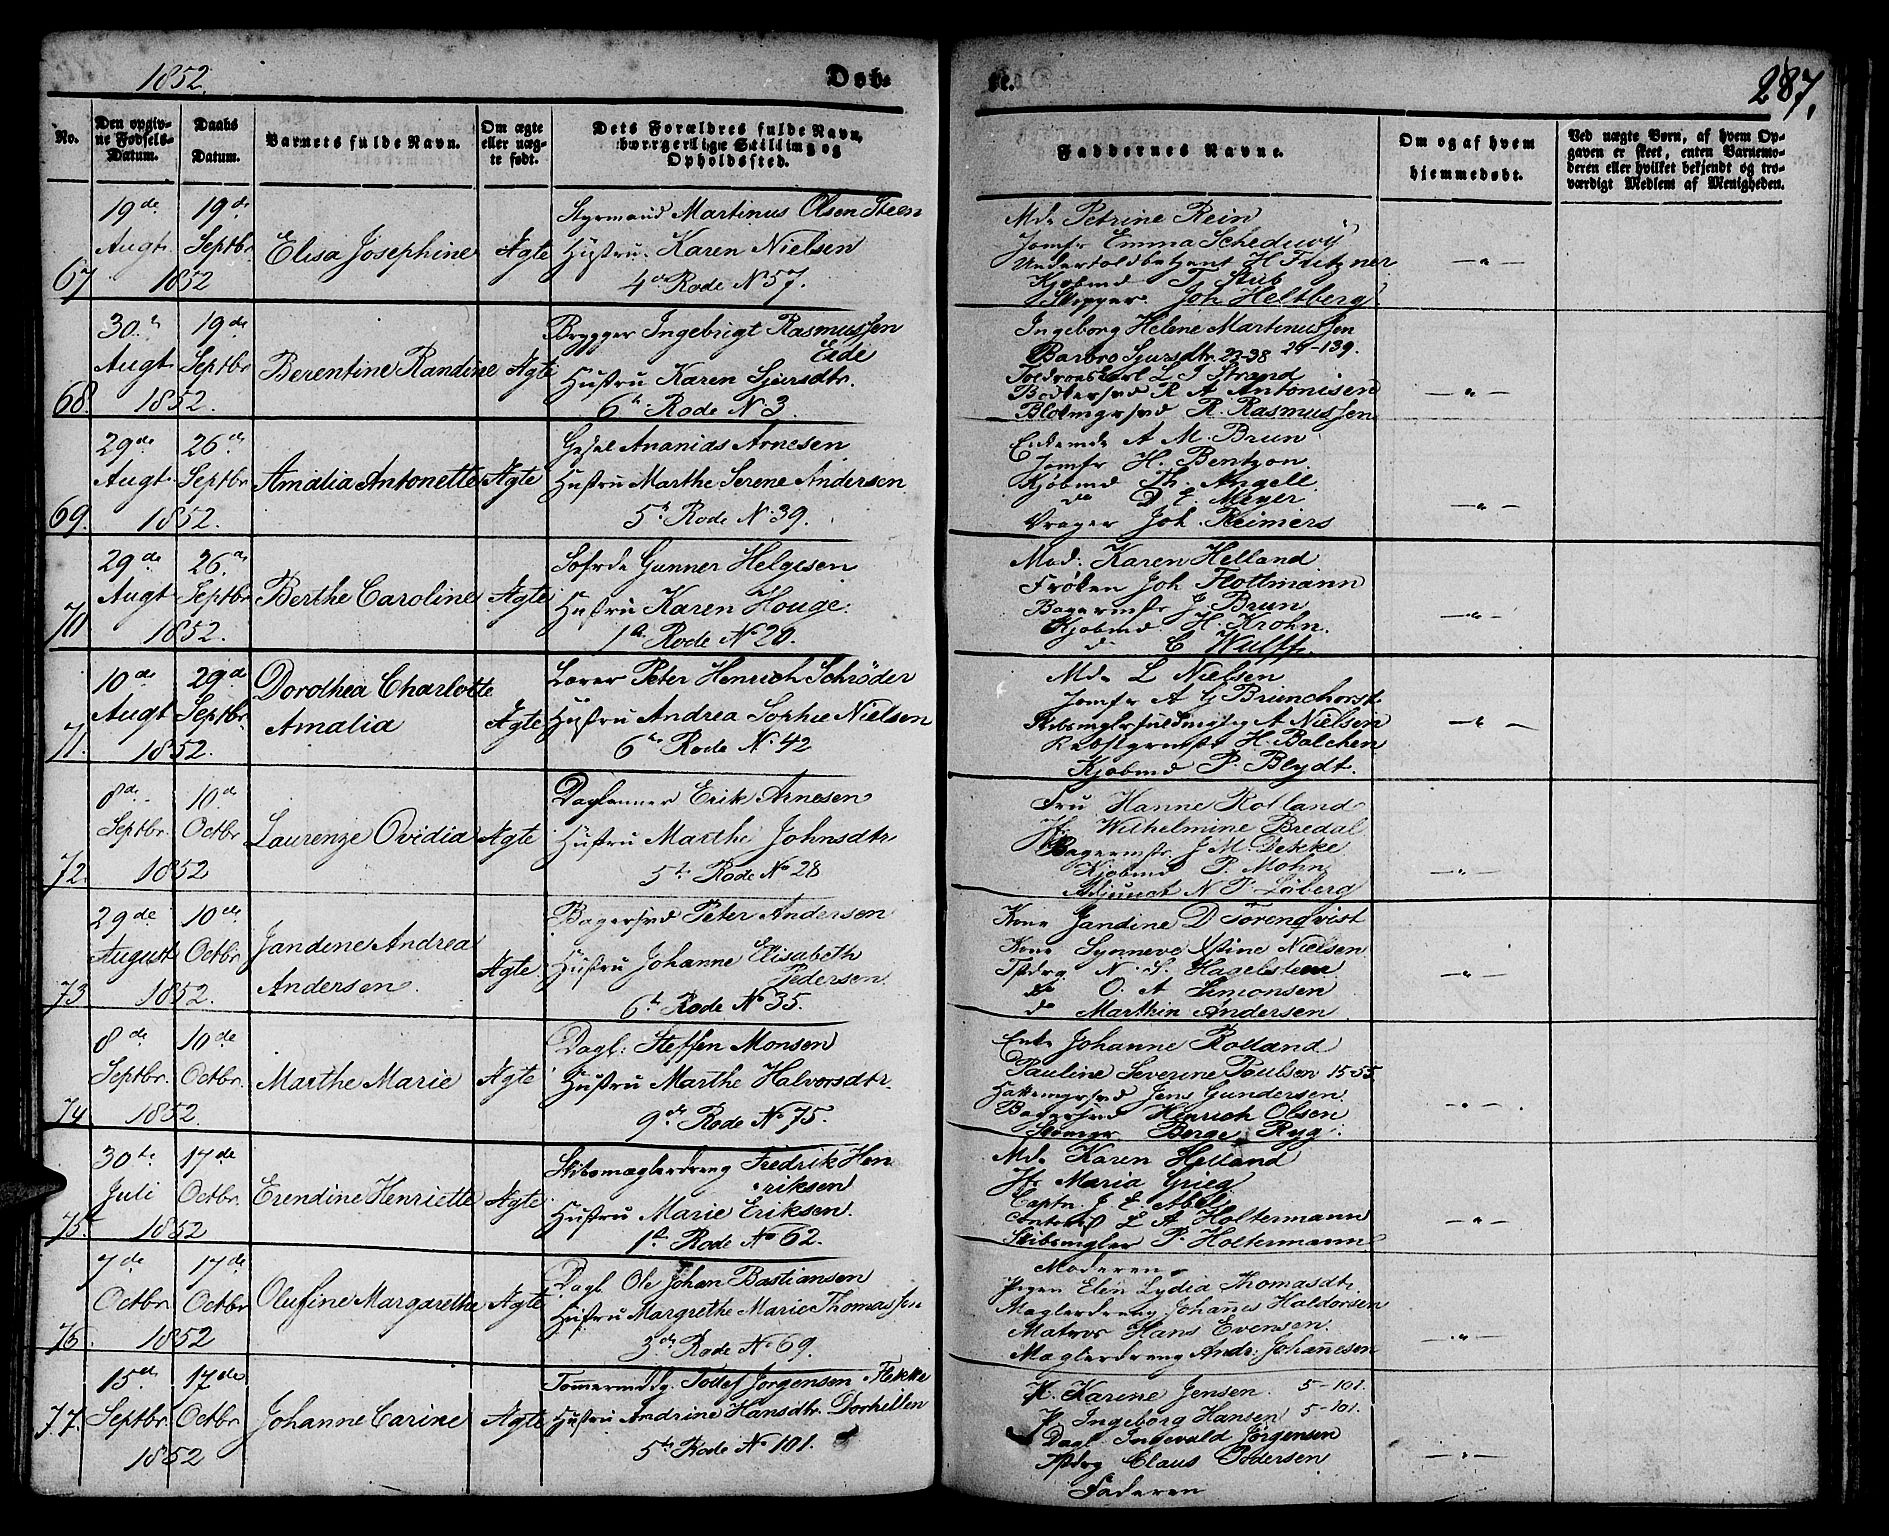 1852.
Døb-
te.
287.
No.
Den opgiv-
ne Fødsels-
Datum.
Daabs
Datum.
Barnets fulde Navn.
Om ægte
eller uæg-
te født.
Dets Forældres fulde Navn,
borgerlige Stilling og
Opholdssted.
Faddernes Navne.
Om og af hvem
hjemmedøbt.
Ved uægte Børn, af hvem Op-
gaven er skeet, enten Barnemo-
deren eller hvilket bekjendt og tro-
værdigt Medlem af Menigheden.
67
19de
Augt.
19de
Septbr
1852
Elisa Josephine
Ægte
Styrmand Martinus Olsen Steen
Hustru. Karen Nielsen
4de Rode No 57.
Md. Petrine Rein
Jomfr Emma Schedewij
Undertoldbetjent H Fritzner
Kjøbmd T. Stub
Skipper. Joh Heltberg.
68.
30.te
Augt.
19de
Septbr
1852.
Berentine Randine
Ægte
Brygger Ingebrigt Rasmussen
Eide
Hustru Karen Sjursdtr.
6te Rode No 3.
Ingeborg Helene Martinussen
Barbro Sjursdtr. 22-38 24-139.
L J Strand
Bødkersvd R A Antonisen
R. Rasmussen
69.
29de
Augt
26de
Septbr
1852.
Amalia Antonette
Ægte
Ananias Arnesen
Hustru Marthe Serene Andersen.
5te Rode No 39.
Enkemde A M. Brun
Jomfr H. Bentzon.
Kjøbmd Th. Angell.
do D E. Meyer
Vrager Joh. Reimers
70
29de
Augt
26de
Septbr
1852.
Berthe Caroline
Ægte
Gunner Helgesen
Hustru Karen Houge.
1ste Rode No 20.
Mad. Karen Helland
Frøken Joh Flottmann
Bagermstr J Brun
Kjøbmd. H. Krohn.
do C Wulff.
71.
10de
Augt
29de
Septbr.
1852.
Dorothea Charlotte
Amalia
Ægte
Lærer Peter Henrich Schrøder
Hustru Andrea Sophie Nielsen
6te Rode No 42
Md. L Nielsen
Jomfr A G Brunchorst
A Nielsen
H. Balchen
Kjøbmd P. Blydt.
72.
8de
Septbr.
10de
Octbr
1852
Laurenze Ovidia
Ægte
Daglønner Erik Arnesen
Hustru Marthe Johnsdtr
5te Rode No 28
Fru Hanne Rolland
Jfr Wilhelmine Bredal
Bagermstr. J M. Dekke
Kjøbmd P. Mohn
Adjunct N P. Løberg
73
29de
August
10de
Octbr
1852.
Jandine Andrea
Andersen.
Ægte
Bagersvd Peter Andersen
Hustru Johanne Elisabeth
Pedersen
6te Rode No 35.
Kone Jandine D Torenqvist
Kone Synneve Stine Nielsen
N. S. Hagelsteen
do O. A Simonsen
do Marthin Andersen
74
8de
Septbr
10de
Octbr.
1852
Marthe Marie
Ægte
Dagl: Steffen Monsen
Hustru Marthe Halvorsdtr.
9de Rode No 75.
Enke Johanne Rolland
Pauline Severine Poulsen 15-55
Jens Gundersen
Bagersvd Henrich Olsen
Berge Ryg.
75.
30te
Juli
17de
Octbr.
1852
Erendine Henriette
Ægte
Skibsmæglerdreng Fredrik Hen
riksen
Hustru Marie Eriksen.
1ste Rode No 62.
Md. Karen Helland
Jfr Maria Grieg
Captn J. E. Abel
L A Holtermann
Skibsmgler P. Holtermann
76.
7de
Octbr.
17de
Octbr
1852
Olufine Margarethe
Ægte
Dagl Ole Johan Bastiansen
Hustru Margrethe Marie Thomassen
3de Rode No 69.
Moderen
Pigen Elen Lydia Thomasdt.
Mæglerdreng Johannes Haldorsen
Matros Hans Evensen.
Mæglerdreng Andr. Johannesen
77.
15de
Septbr
17de
Octbr
1852
Johanne Carine
Ægte
Tømmermddg. Tollef Jørgensen Flekke
Hustru Andrine Hansdtr. Dorhillen
5te Rode No 101.
K. Karine Jensen. 5-101.
P. Ingeborg Hansen 5-101.
Dagl. Ingevald Jørgensen
Claus Pedersen
Faderen